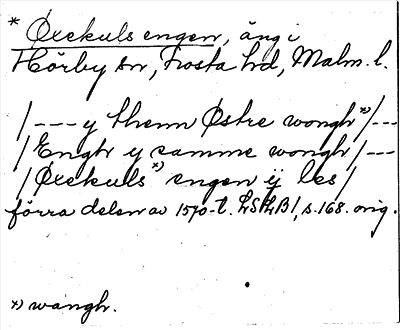 * Öxekuls engen, äng i
Hörby sn, Frosta hd, Malm. l.
/--- y thenn Östre wongh *)/---
/Engh y samme wongh/---
/Öxekuls *) engen ij les/
förra delen av 1570-t. LSLB1, s. 168. orig.
*) wangh.